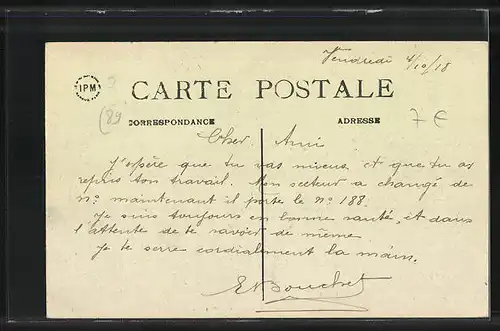 Vendredi 4/10/18
IPM
CARTE POSTALE
(89
CORRESPONDANCE
ADRESSE
7 €
Cher Ami
J'espère que tu vas mieux, et que tu as
repris ton travail. Mon secteur a changé de
n° maintenant il porte le n° 188.
Je suis toujours en bonne santé, et dans
l'attente de te savoir de même
Je te serre cordialement la main.
E. Bouchet